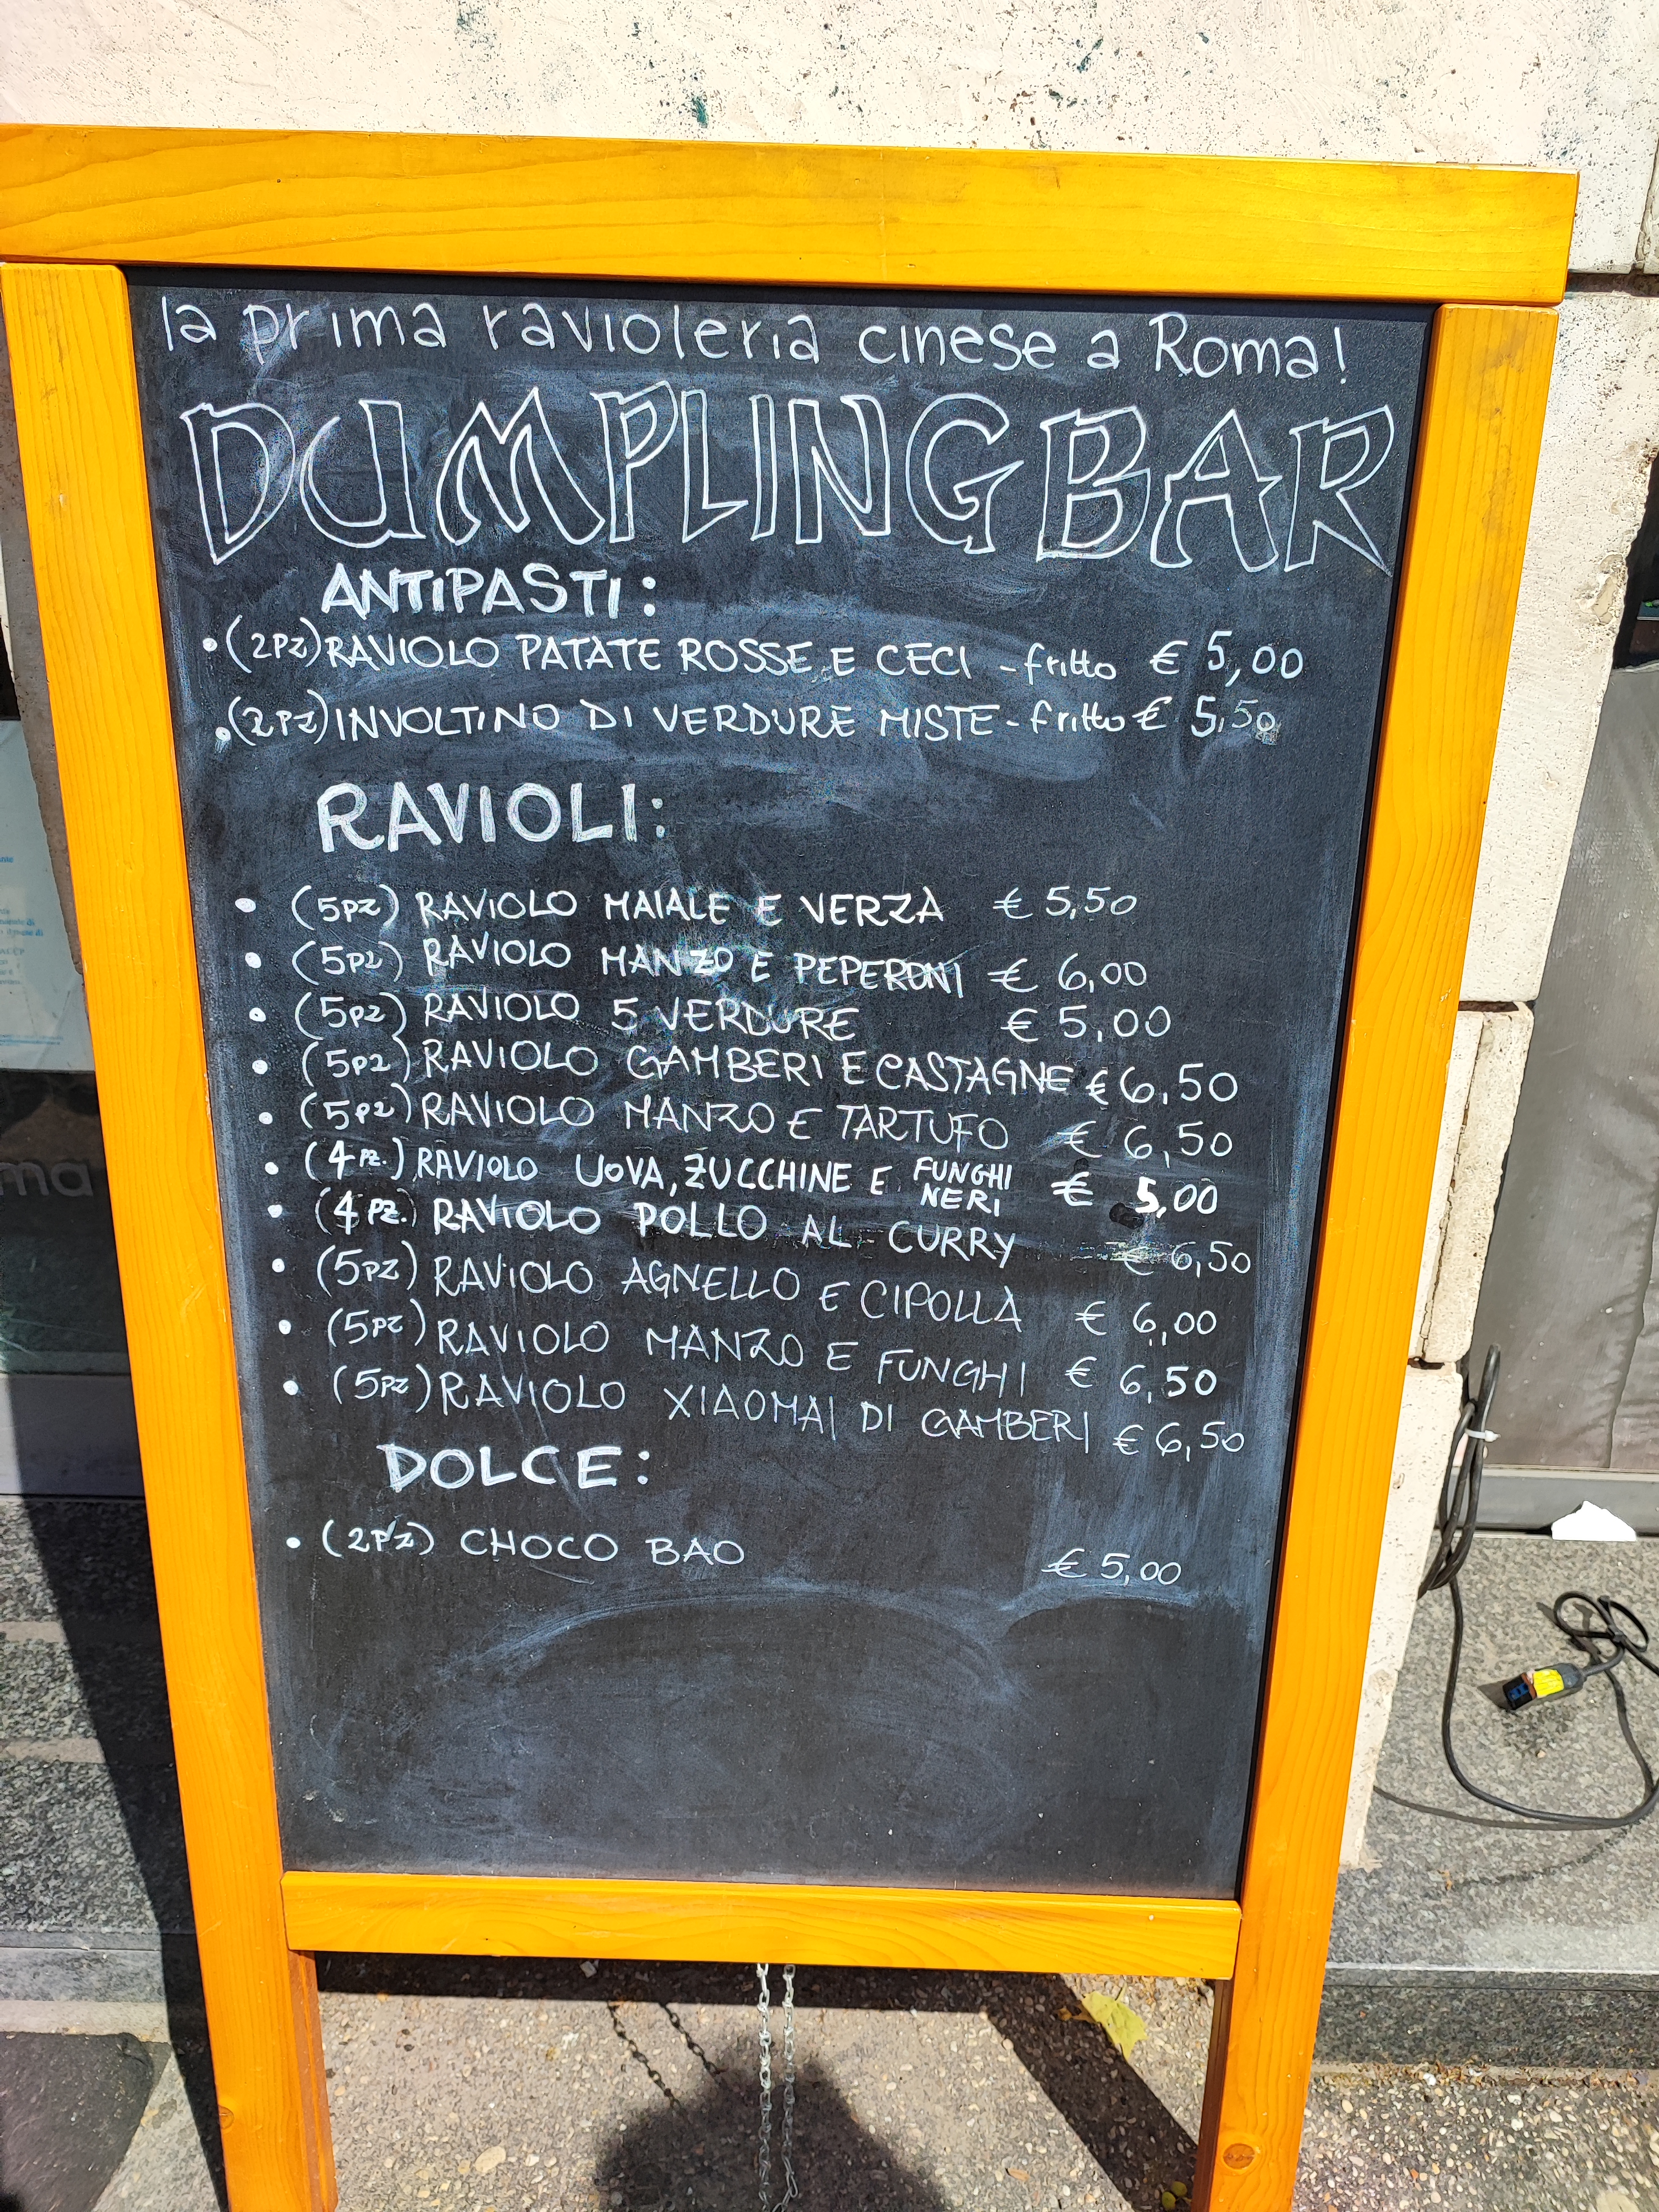 la prima ravioleria cinese a Roma!
DUMPLING BAR
ANTIPASTI:
• (2PZ) RAVIOLO PATATE ROSSE E CECI - fritto € 5,00
• (2PZ) INVOLTINO DI VERDURE MISTE - fritto € 5,50
RAVIOLI:
• (5PZ) RAVIOLO MAIALE E VERZA € 5,50
• (5PZ) RAVIOLO MANZO E PEPERONI € 6,00
• (5PZ) RAVIOLO 5 VERDURE € 5,00
• (5PZ) RAVIOLO GAMBERI E CASTAGNE € 6,50
• (5PZ) RAVIOLO MANZO E TARTUFO € 6,50
• (4PZ.) RAVIOLO UOVA, ZUCCHINE E FUNGHI NERI € 5,00
• (4PZ.) RAVIOLO POLLO AL CURRY € 6,50
• (5PZ) RAVIOLO AGNELLO E CIPOLLA € 6,00
• (5PZ) RAVIOLO MANZO E FUNGHI € 6,50
• (5PZ) RAVIOLO XIAOMAI DI GAMBERI € 6,50
DOLCE:
• (2PZ) CHOCO BAO € 5,00
ma